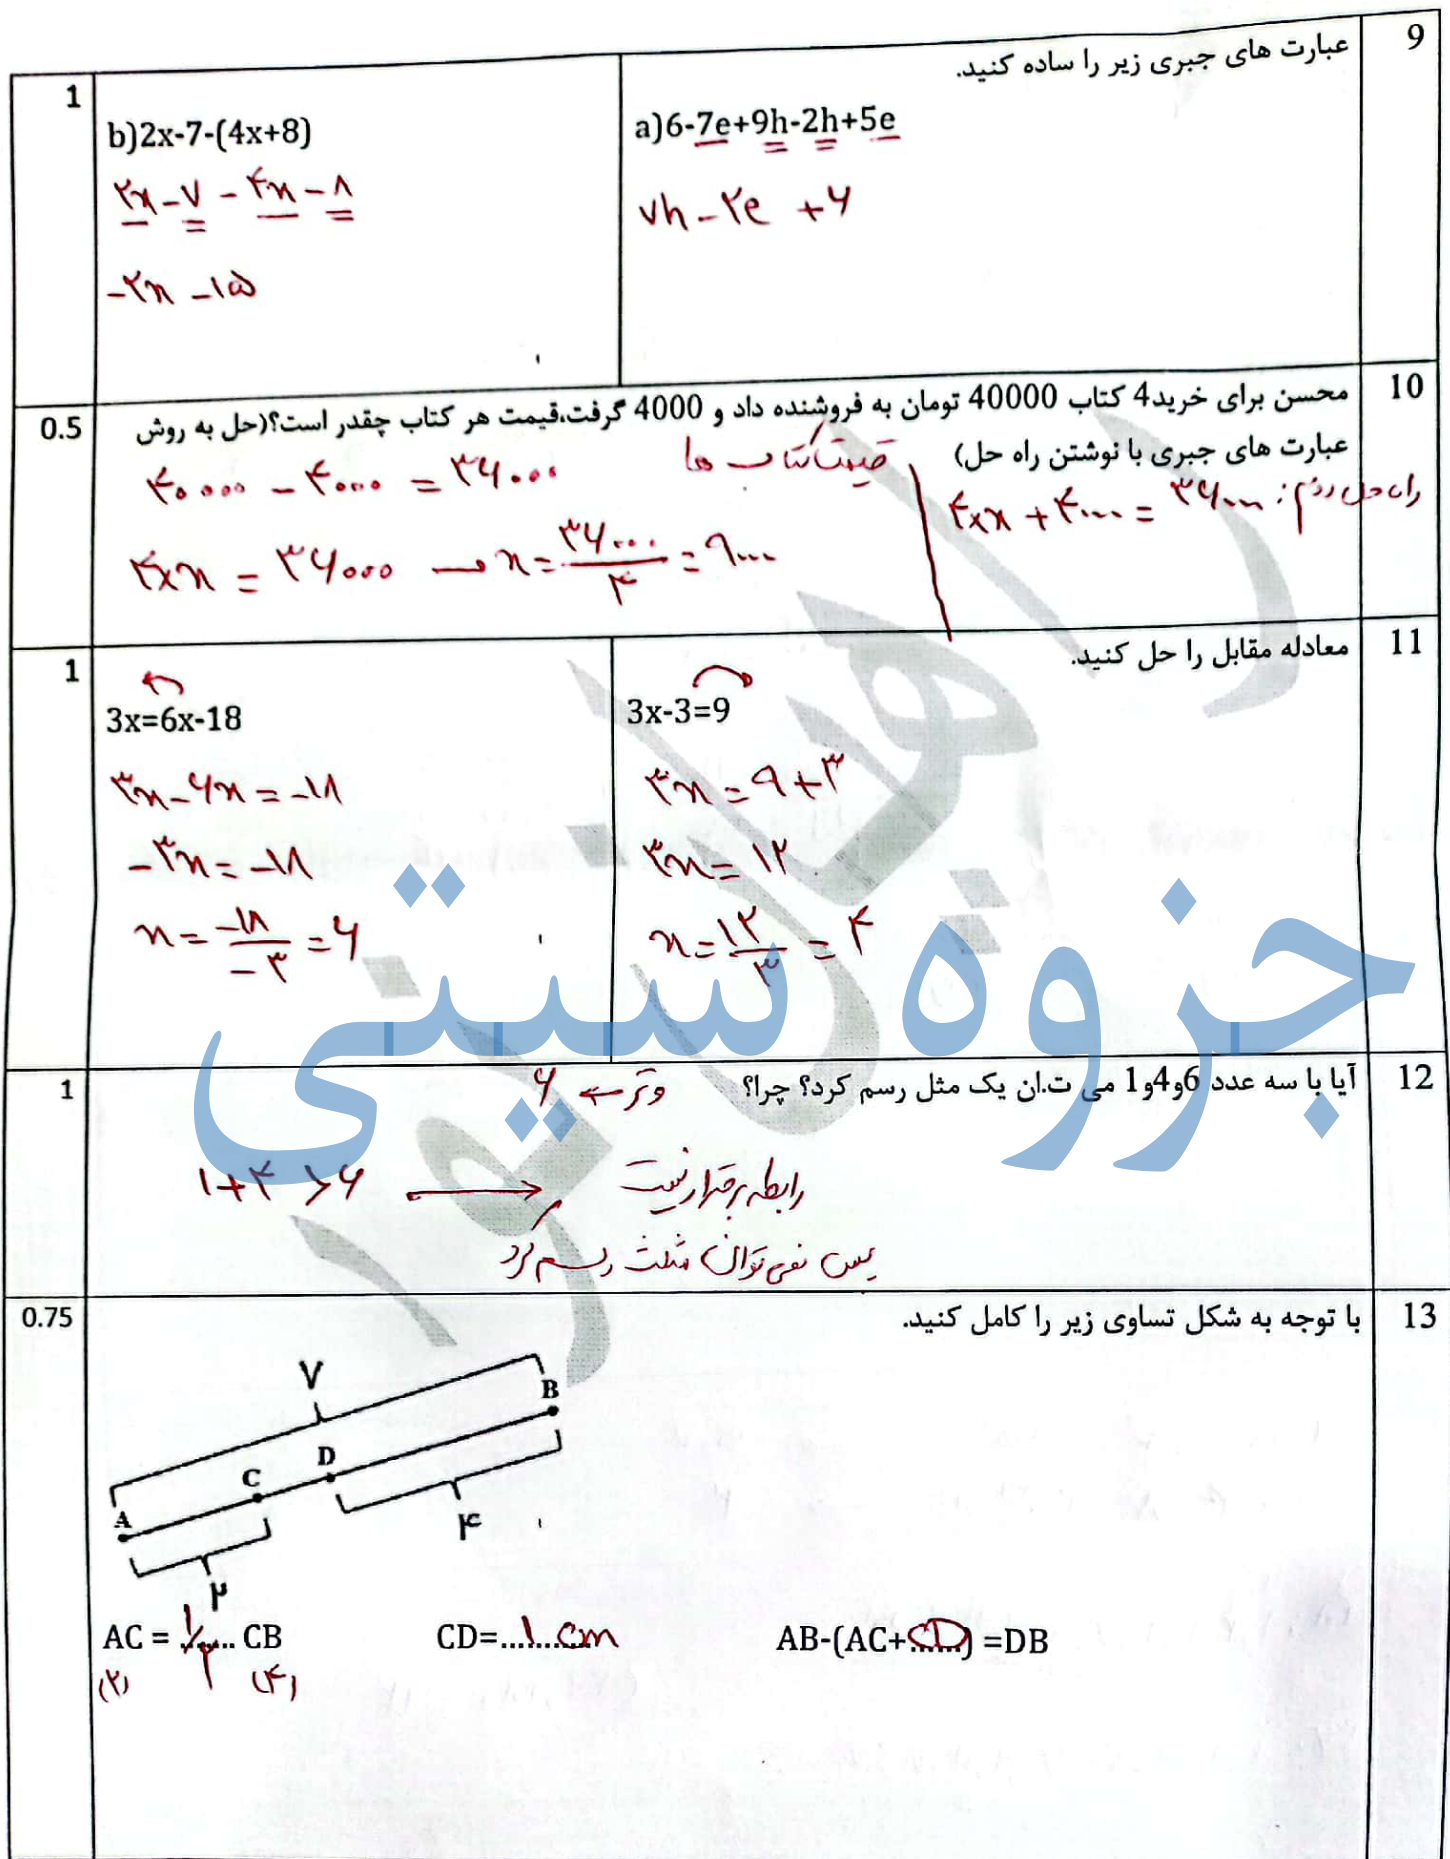 9
عبارت های جبری زیر را ساده کنید.
a)6-7e+9h-2h+5e
۷h-۲e +۶
1
b)2x-7-(4x+8)
۲x-۷-۴x-۸
-۲x-۱۵
10
محسن برای خرید4 کتاب 40000 تومان به فروشنده داد و 4000 گرفت،قیمت هر کتاب چقدر است؟(حل به روش
عبارت های جبری با نوشتن راه حل)
0.5
قیمت کتاب ها
۴۰۰۰۰ - ۴۰۰۰ = ۳۶۰۰۰
۴×x = ۳۶۰۰۰ → x = ۳۶۰۰۰/۴ = ۹۰۰۰
راه حل دوم: ۴×x + ۴۰۰۰ = ۳۶۰۰۰
11
معادله مقابل را حل کنید.
3x-3=9
۳x = ۹+۳
۳x = ۱۲
x = ۱۲/۳ = ۴
1
3x=6x-18
۳x-۶x = -۱۸
-۳x = -۱۸
x = -۱۸/-۳ = ۶
راهیان نور
جزوه سیتی
12
آیا با سه عدد 6و4و1 می ت.ان یک مثل رسم کرد؟ چرا؟
1
وتر ← ۶
۱+۴ > ۶ → رابطه برقرار نیست
پس نمی توان مثلث رسم کرد
13
با توجه به شکل تساوی زیر را کامل کنید.
0.75
۷
B
D
C
A
۴
۲
AC = ...۱/۲... CB
(۲) (۴)
CD=...۱ cm...
AB-(AC+...CD...) =DB